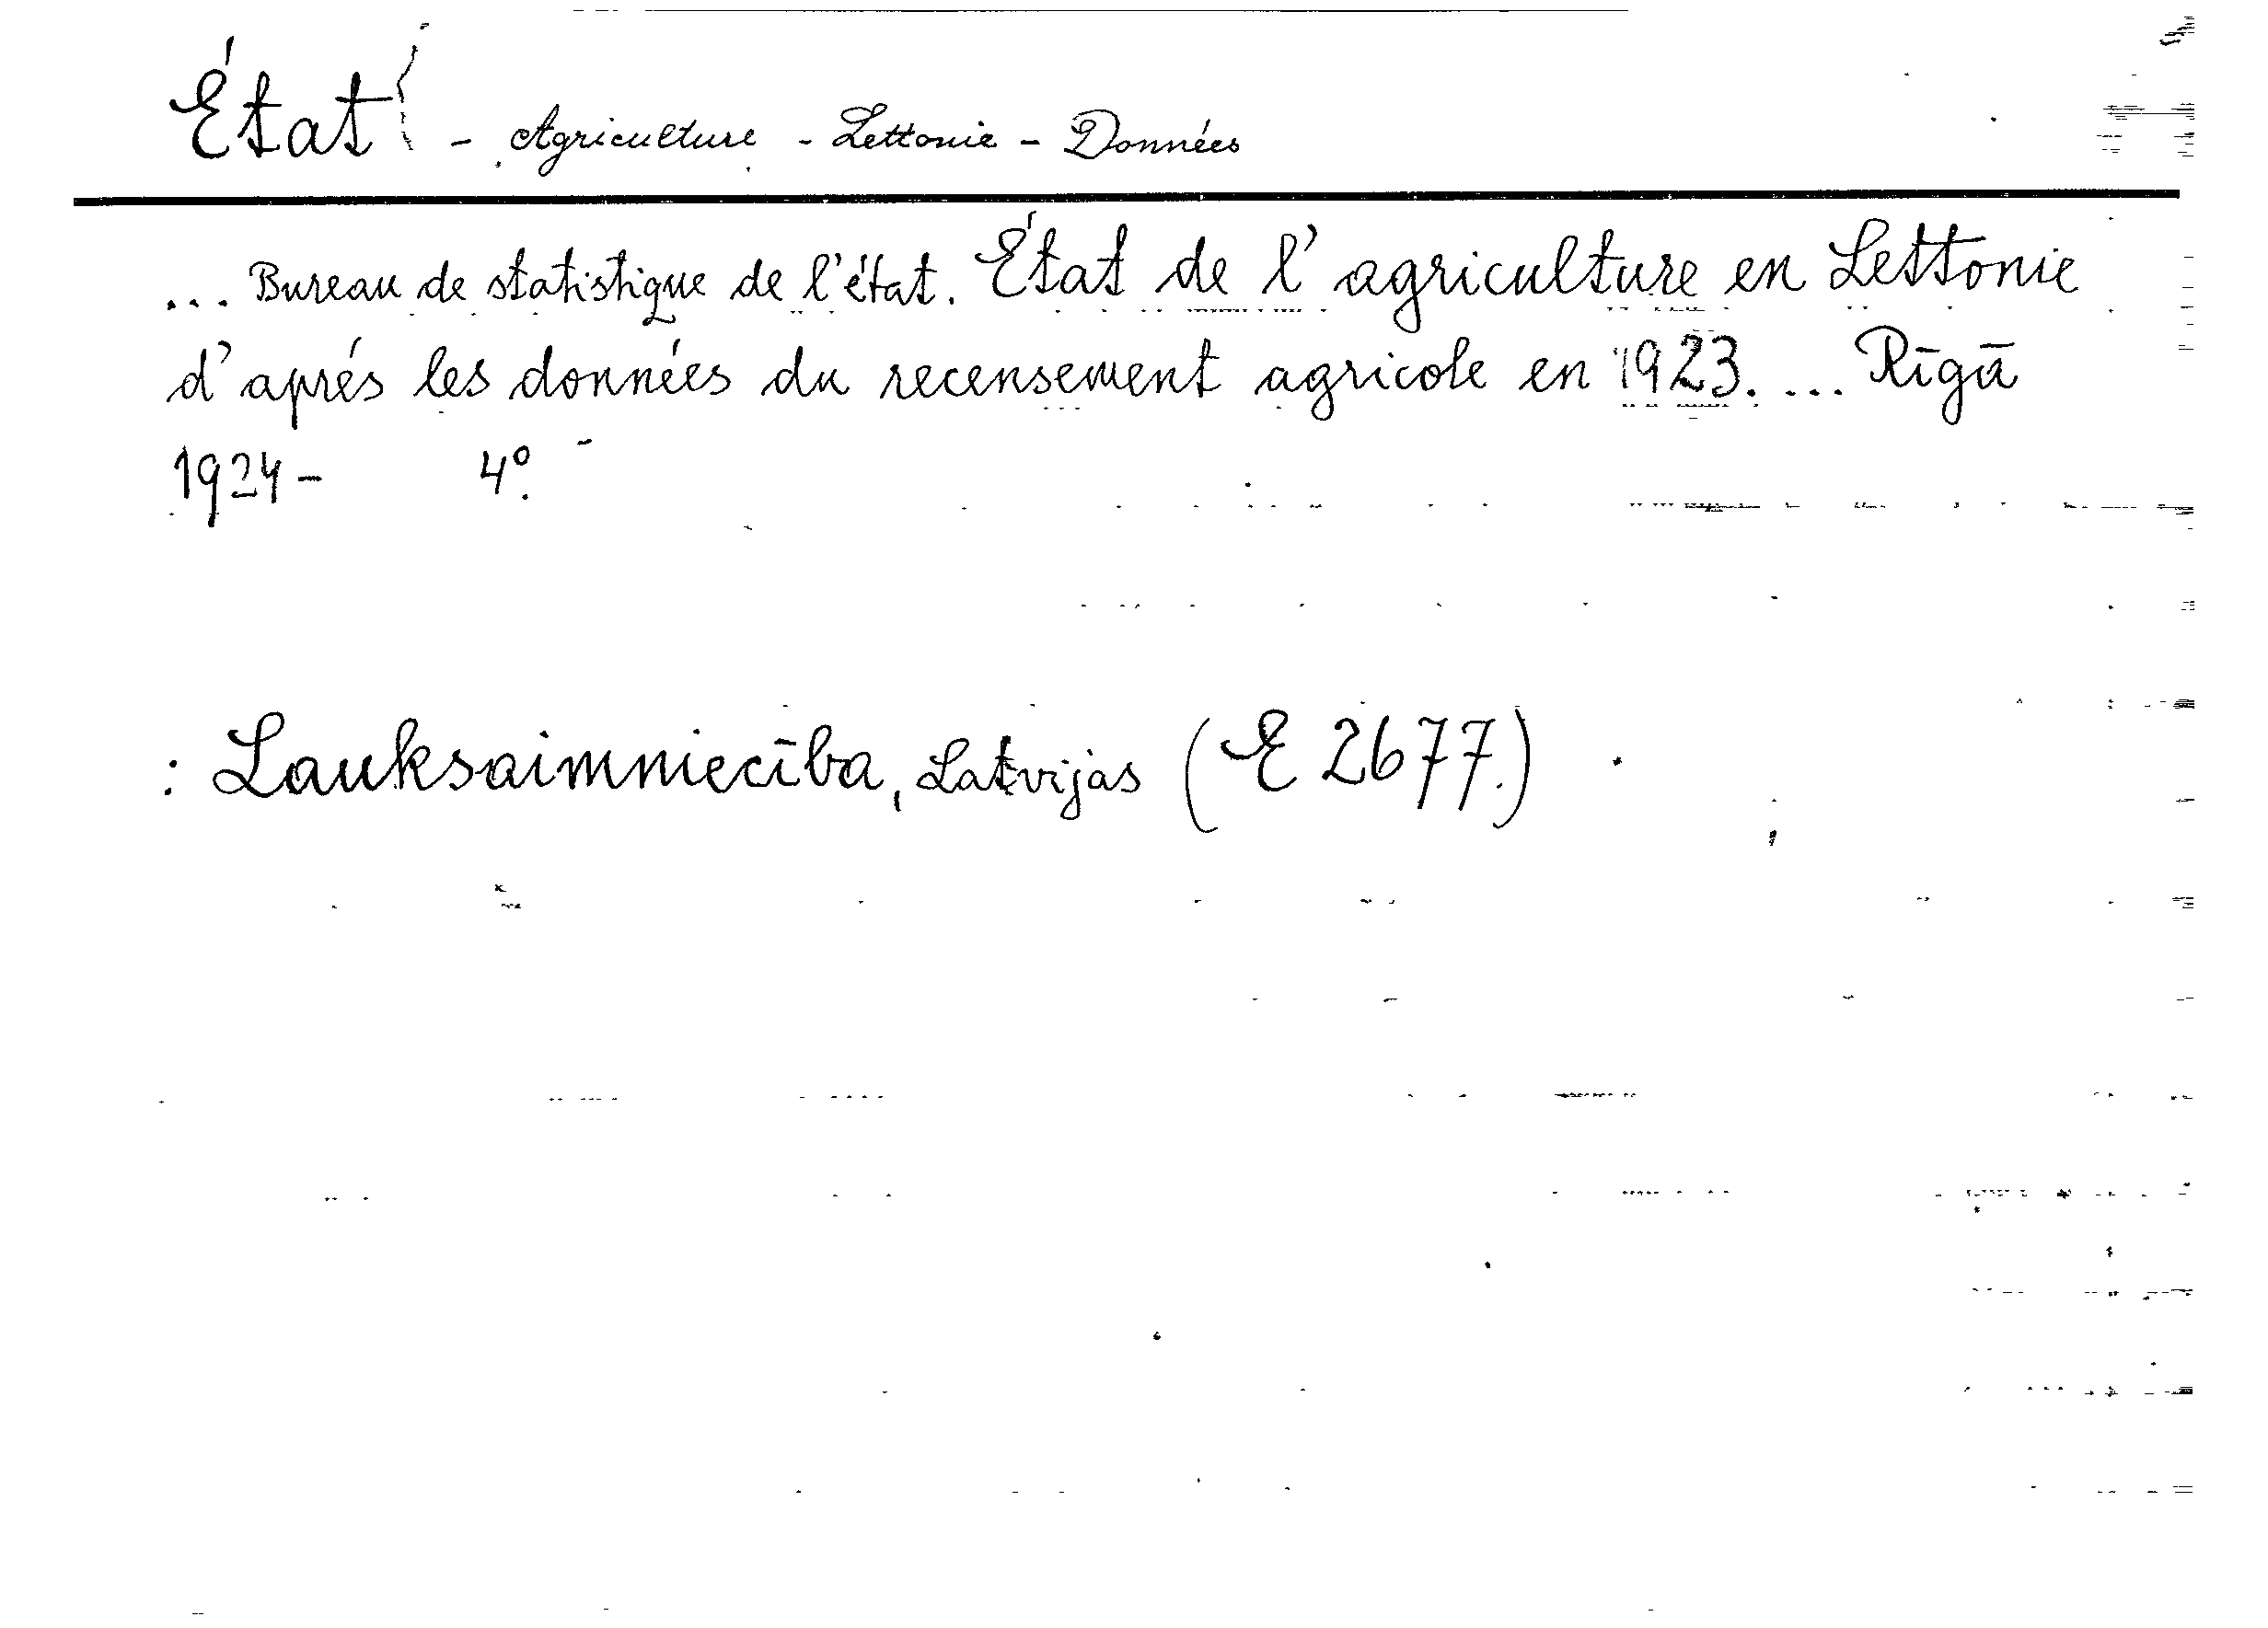 État - Agriculture - Lettonie - Données
... Bureau de statistique de l'état. État de l'agriculture en Lettonie
d'aprés les données du recensement agricole en 1923. ... Rīgā
1924- 4º.
: Lauksaimniecība, Latvijas (E 2677.)